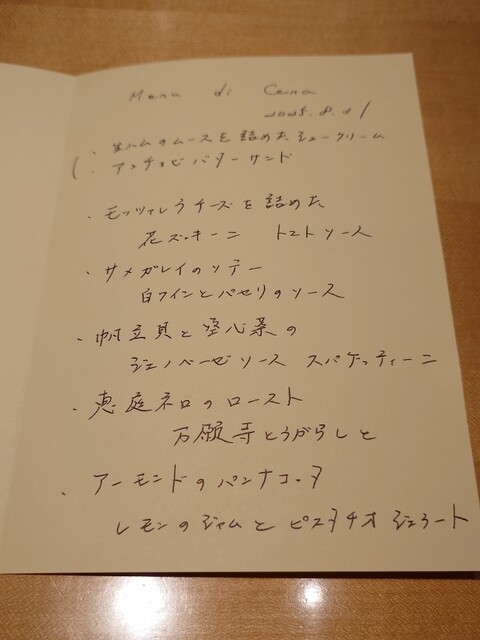 Menu di Cena
2025.8.21
・生ハムのムースを詰めたシュークリーム
・アンチョビバターサンド
・モッツァレラチーズを詰めた
花ズッキーニ トマトソース
・サメガレイのソテー
白ワインとパセリのソース
・帆立貝と空心菜の
ジェノベーゼソース スパゲッティーニ
・恵庭ネロのロースト
万願寺とうがらしと
・アーモンドのパンナコッタ
レモンのジャムと ピスタチオ ジェラート